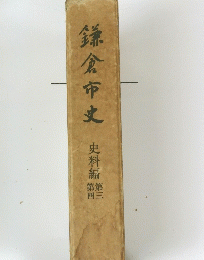 鎌倉市史
史料編
第三
第四